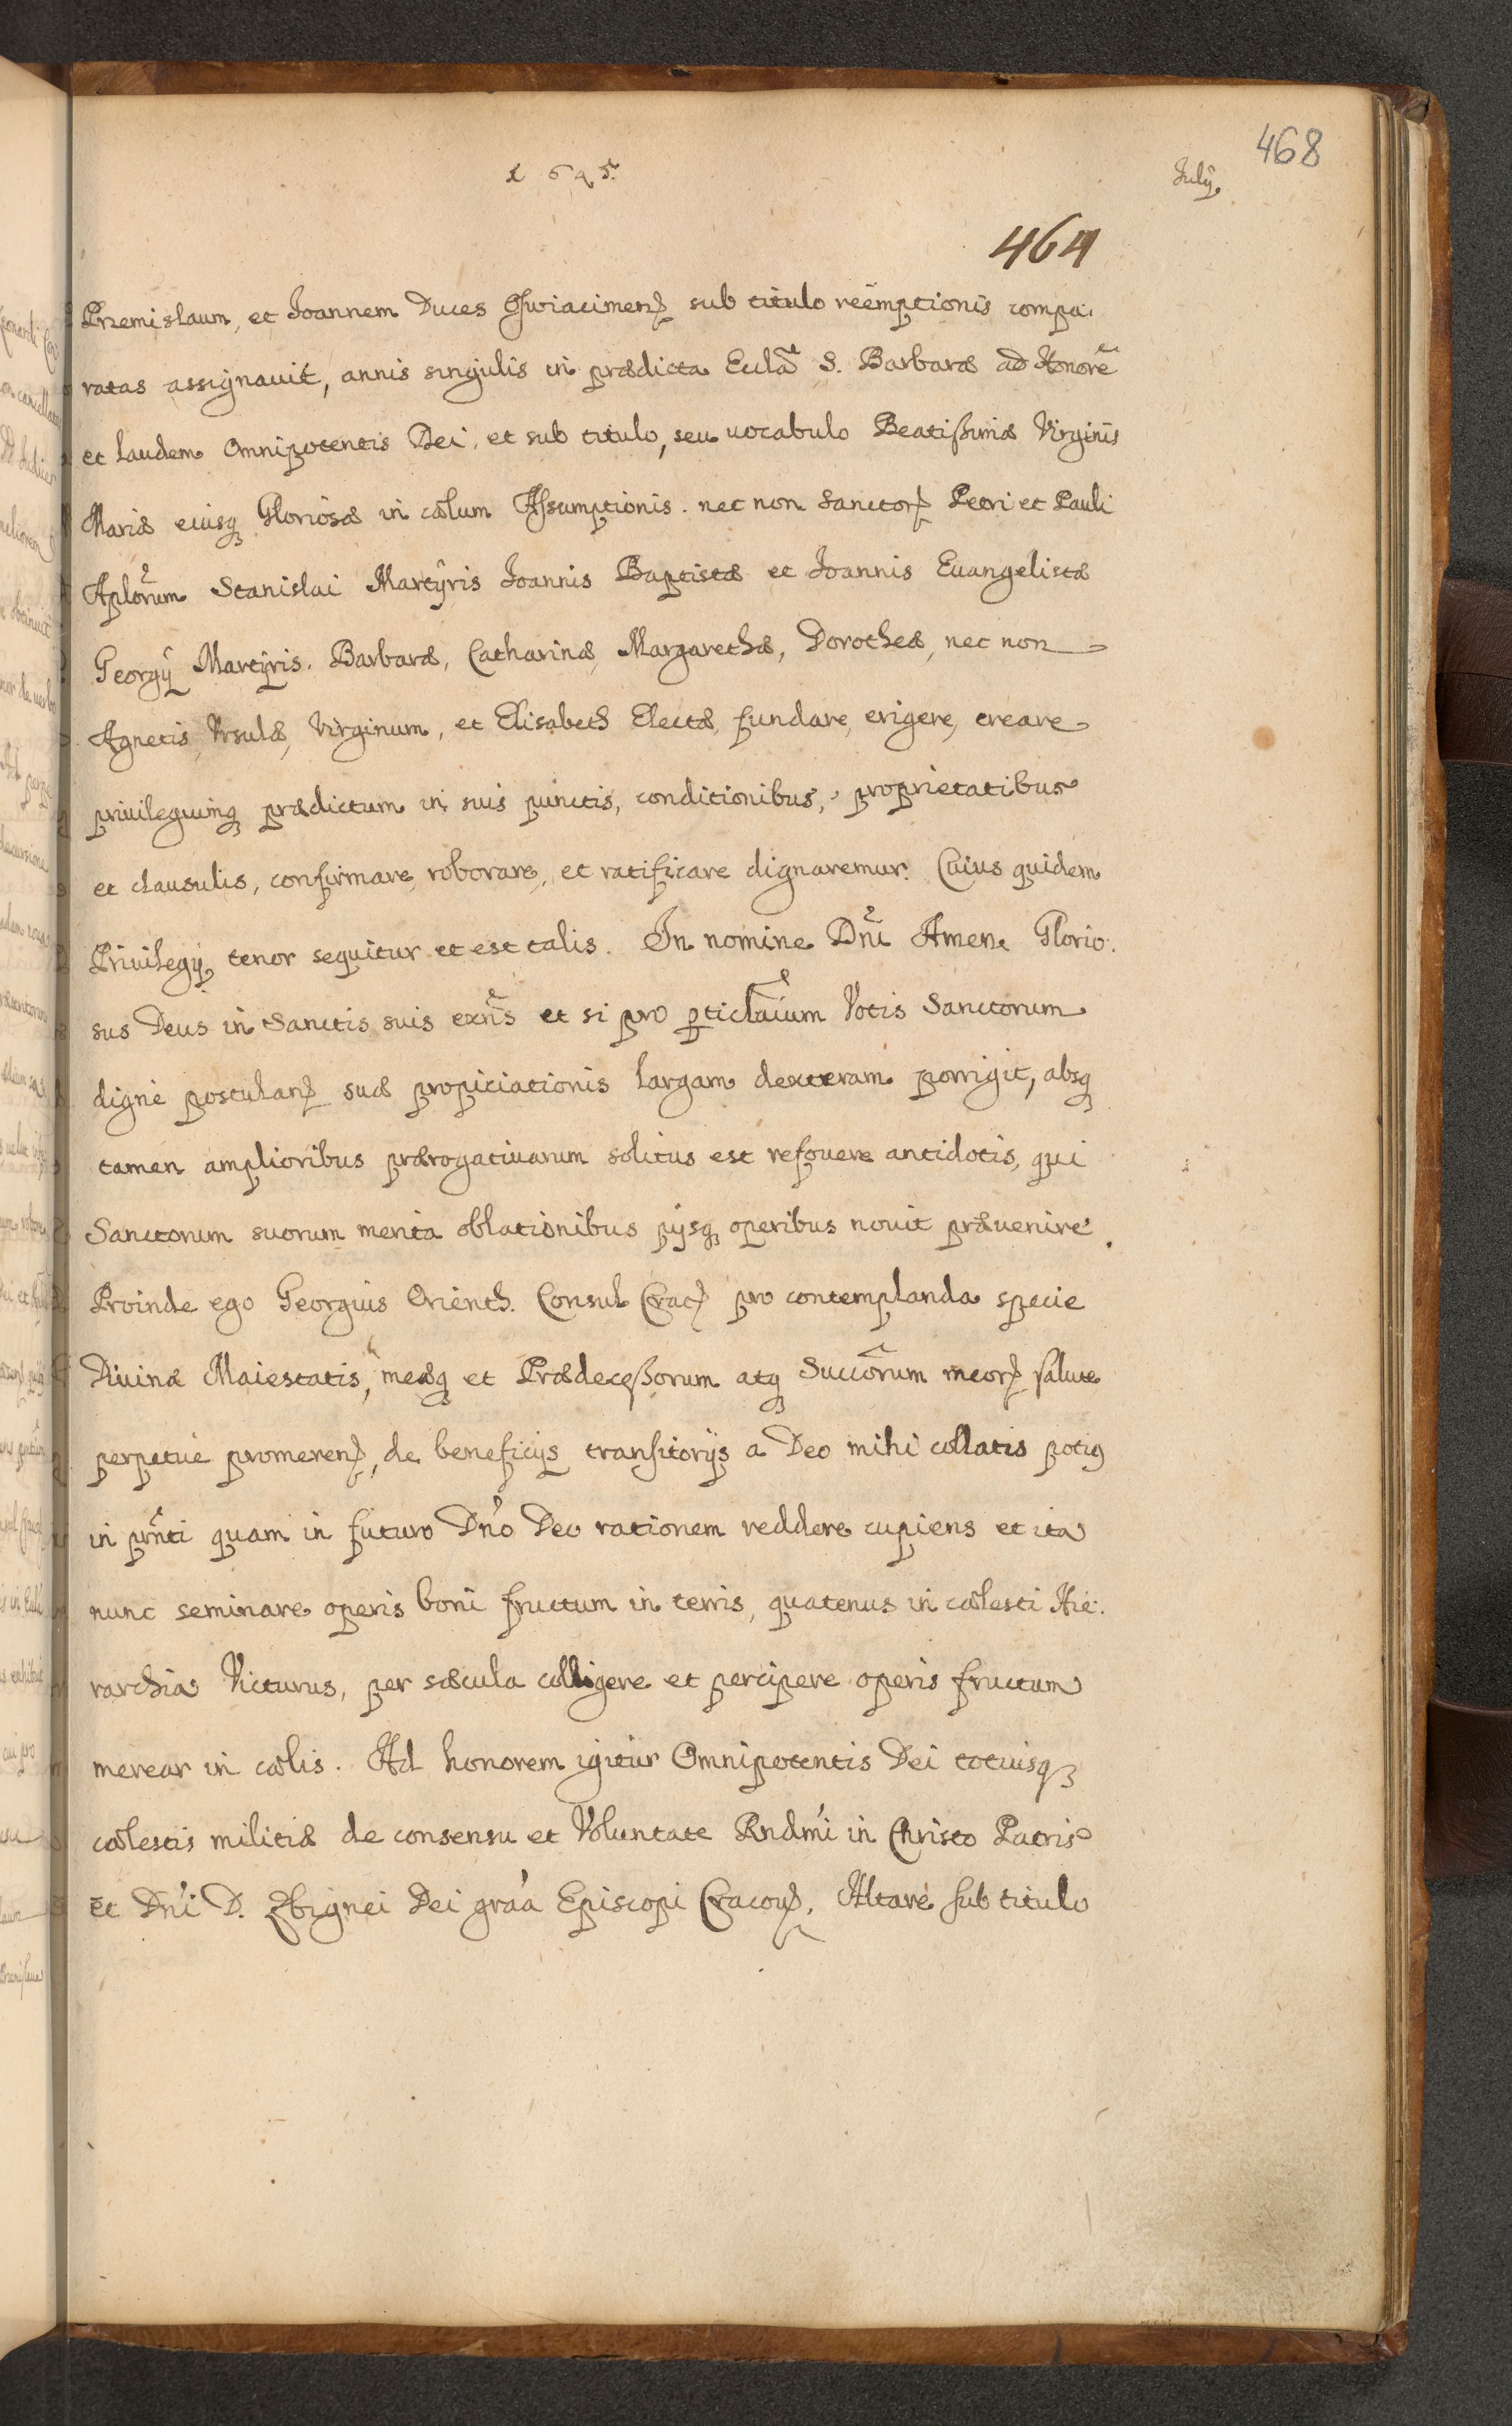 468
July
1695.
464
Przemislaum, et Joannem Duces Osviacimen̄ sub titulo reëmptionis compa.
ratas assignauit, annis singulis in prædicta Eccla͠ S. Barbaræ ad Honorē
et laudem Omnipotentis Dei, et sub titulo, seu uocabulo Beatißimæ Virginis
Mariæ eiusq₃ Gloriosæ in cœlum Aſsumptionis. nec non Sanctorꝝ Petri et Pauli
Aplōrum Stanislai Martÿris Joannis Baptistæ et Joannis Euangelistæ
Georgÿ Martÿris. Barbaræ, Catharinæ, Margarethæ, Dorotheæ, nec non
Agnetis, Vrsulæ, Virginum, et Elisabeth Electæ, fundare, erigere, creare
priuilegiumq₃ prædictum in suis punctis, conditionibus, proprietatibus
et clausulis, confirmare, roborare, et ratificare dignaremur. Cuius quidem
Priuilegÿ, tenor sequitur et est talis. In nomine Dn̄i Amen. Glorio.
sus Deus in Sanctis suis exn̄s et si pro ꝑticla͠ium Votis Sanctorum
digne postulan̄ suæ propiciationis largam dexteram porrigit, absq₃
tamen amplioribus prærogatiuarum solitus est refouere antidotis, qui
Sanctorum suorum merita oblationibus pÿsq₃ operibus nouit præuenire.
Proinde ego Georgius Orienth. Consul Crac̄ pro contemplanda specie
Diuinæ Maiestatis, meæq₃ et Prædeceßorum atq₃ Succōrum meorꝝ ſalute
perpetue promeren̄, de beneficÿs tranſitorÿs a Deo mihi collatis potiꝰ
in prn̄ti quam in futuro Dn̄o Deo rationem reddere cupiens et ita
nunc seminare operis boni fructum in terris, quatenus in cœlesti Hie.
rarchia Victurus, per sæcula colligere et percipere operis fructum
merear in cœlis. Ad honorem igitur Omnipotentis Dei totiusq₃
cœlestis militiæ de consensu et Voluntate Rndm̄i in Christo Patris
et Dn̄i D. Zbignei Dei gra͠a Episcopi Cracou̅, Altare ſub titulo